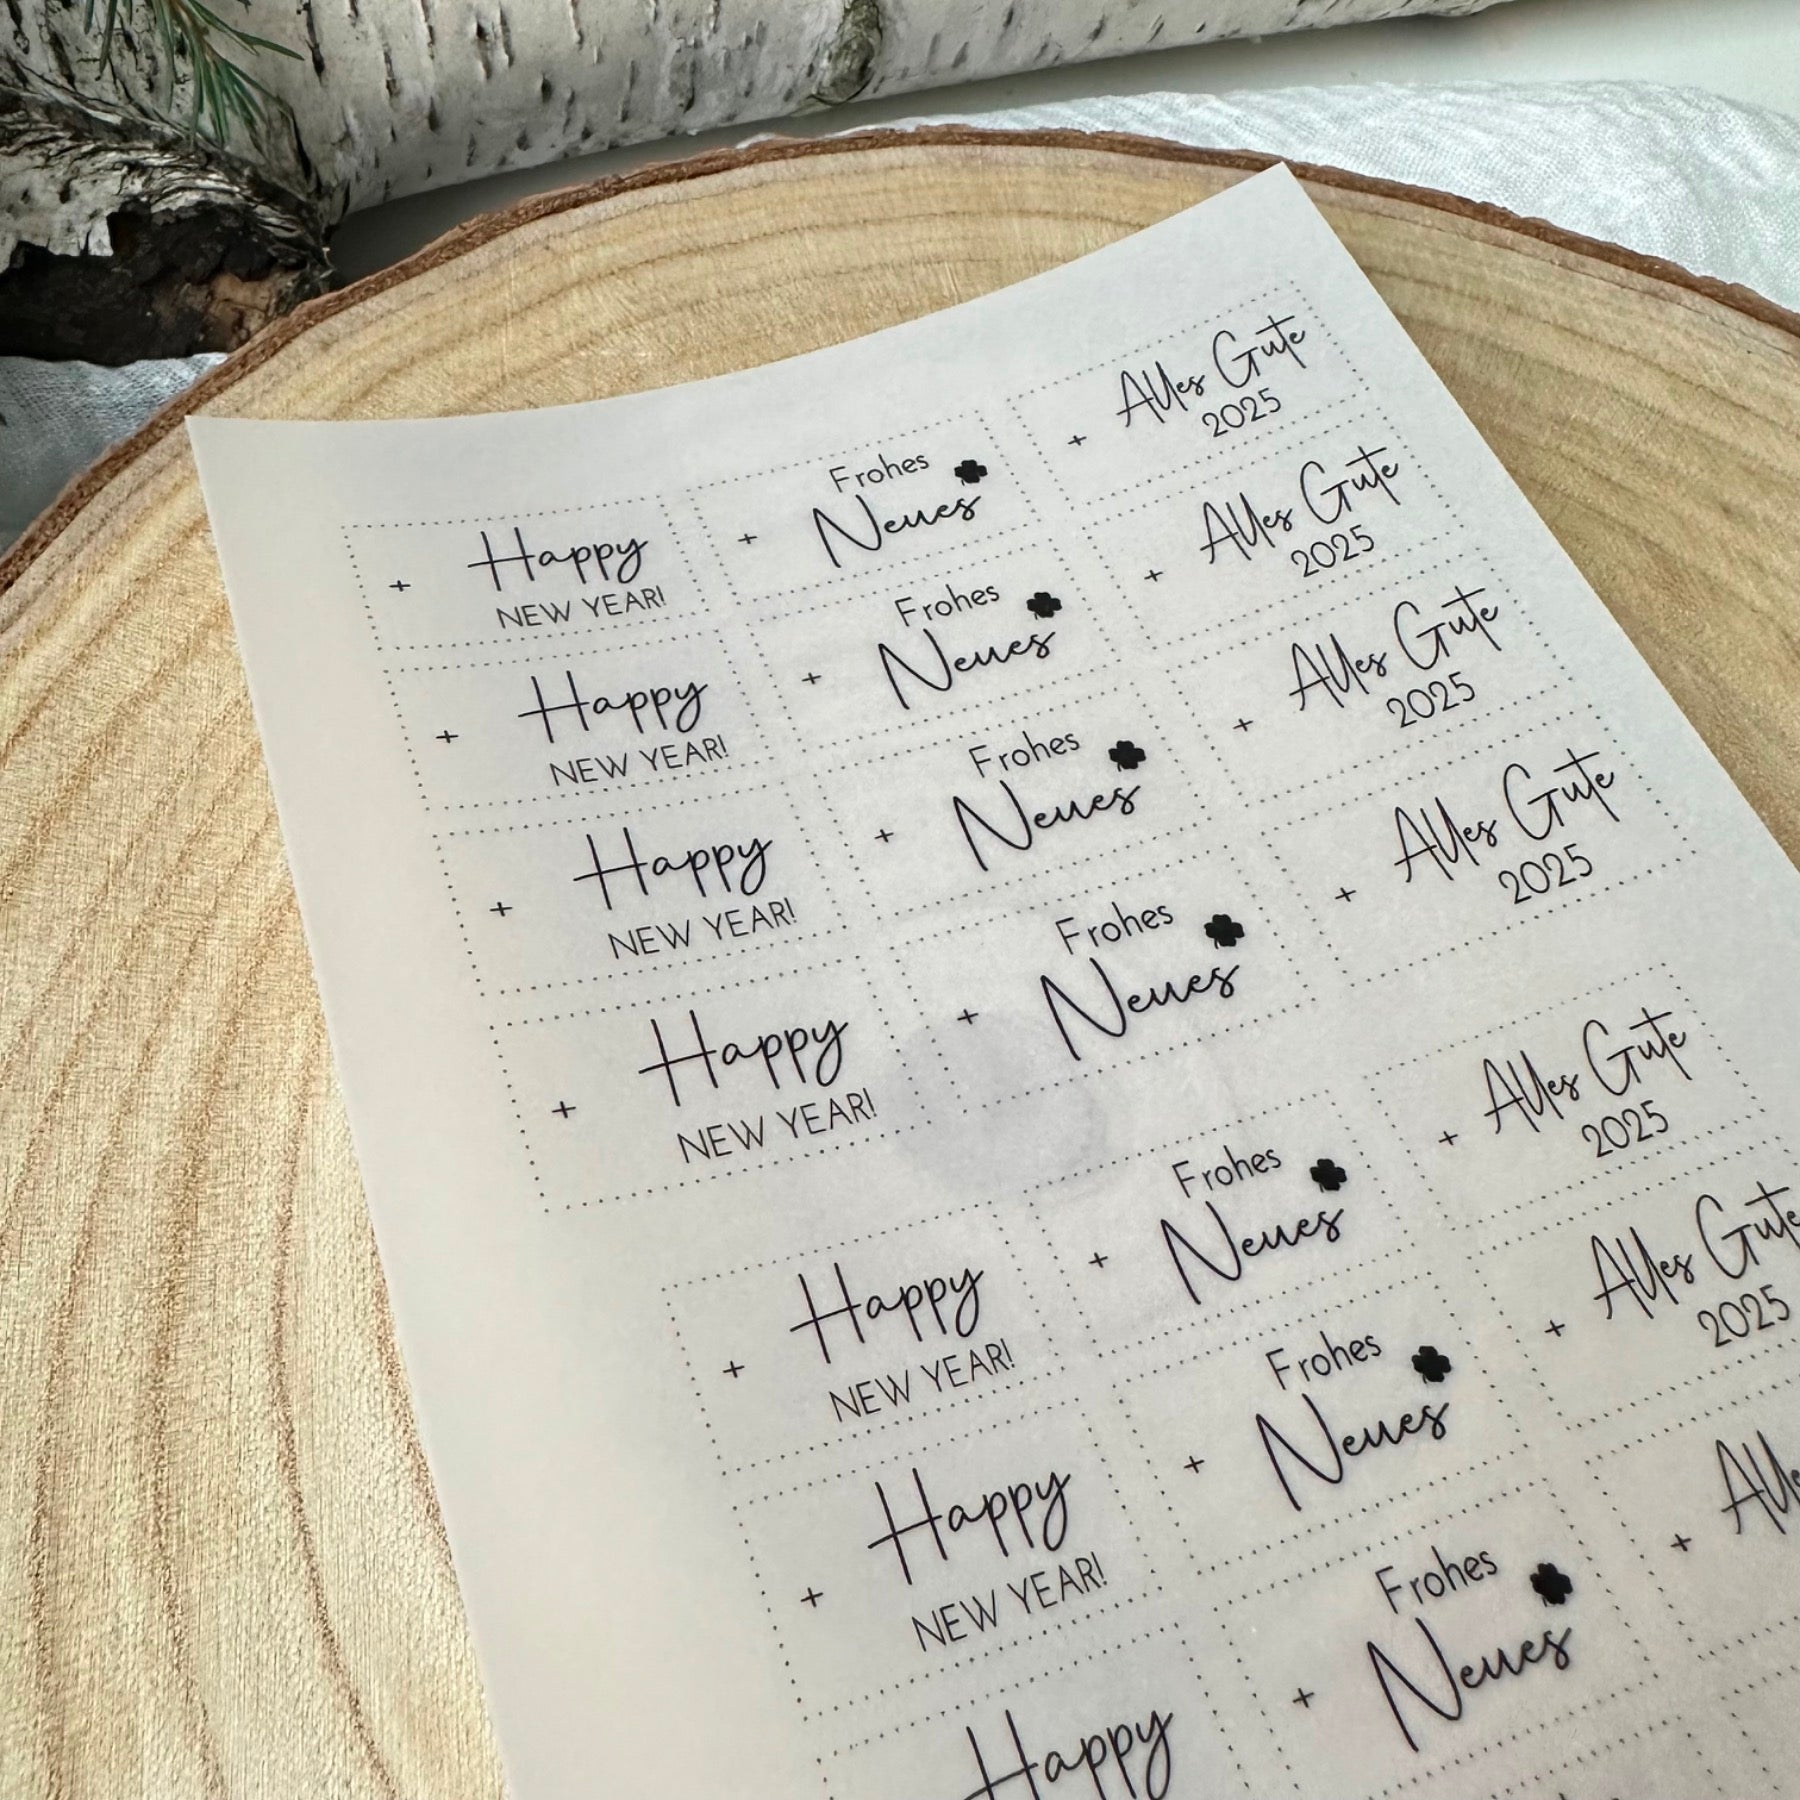 Happy
NEW YEAR!
Frohes
Neues
Alles Gute
2025
Happy
NEW YEAR!
Frohes
Neues
Alles Gute
2025
Happy
NEW YEAR!
Frohes
Neues
Alles Gute
2025
Happy
NEW YEAR!
Frohes
Neues
Alles Gute
2025
Happy
NEW YEAR!
Frohes
Neues
Alles Gute
2025
Happy
NEW YEAR!
Frohes
Neues
Alles Gute
2025
Happy
Frohes
Neues